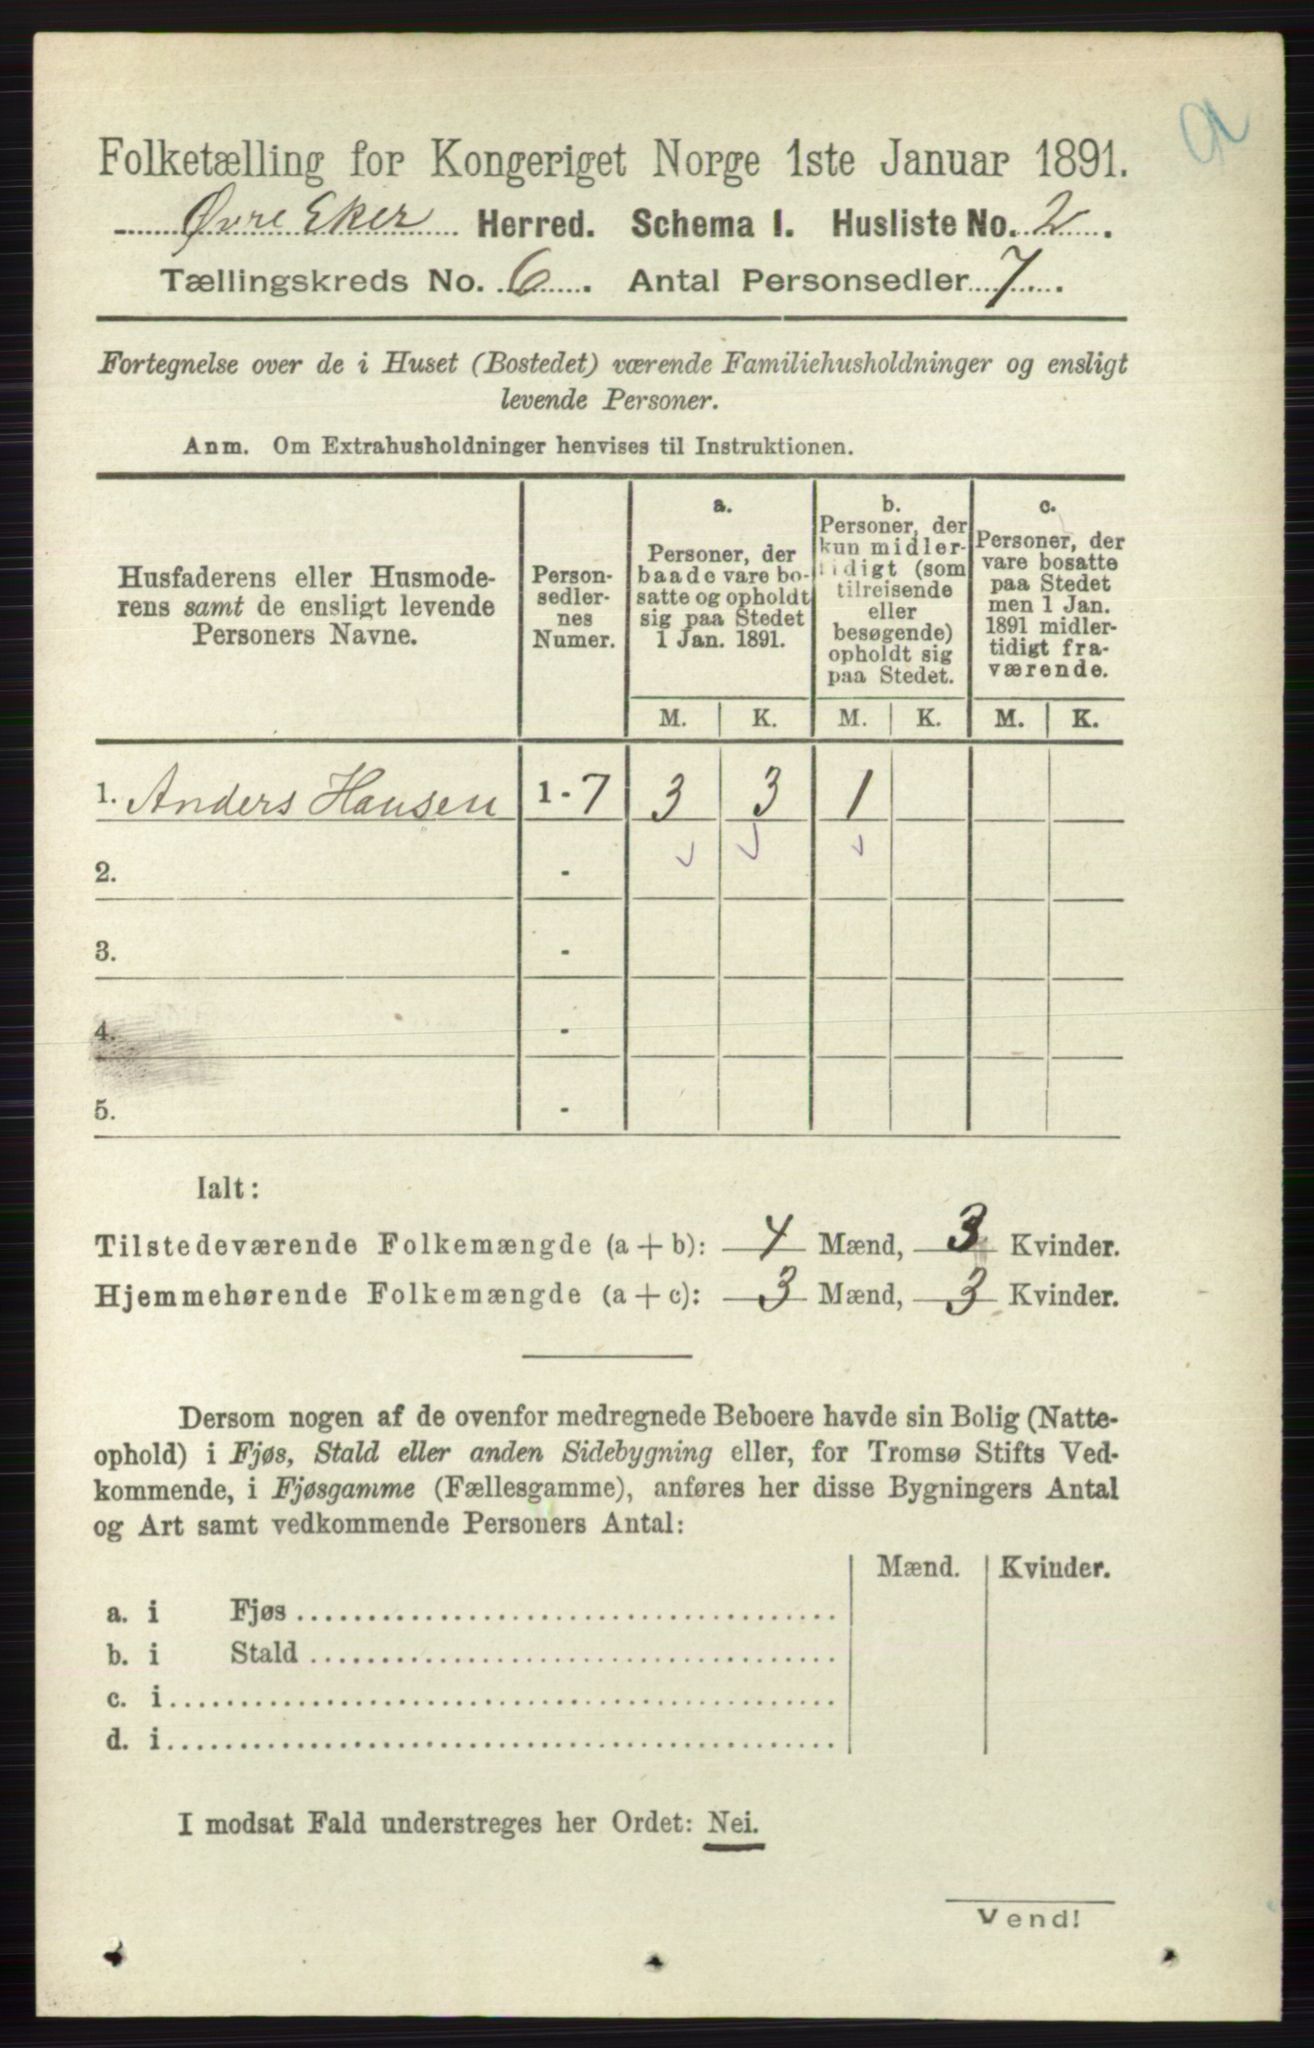 a
Folketælling for Kongeriget Norge 1ste Januar 1891.
Øvre Eker Herred. Schema I. Husliste No. 2.
Tællingskreds No. 6. Antal Personsedler 7.
Fortegnelse over de i Huset (Bostedet) værende Familiehusholdninger og ensligt
levende Personer.
Anm. Om Extrahusholdninger henvises til Instruktionen.
Husfaderens eller Husmode-
rens samt de ensligt levende
Personers Navne.
Person-
sedler-
nes
Numer.
a.
Personer, der
baade vare bo-
satte og opholdt
sig paa Stedet
1 Jan. 1891.
b.
Personer, der
kun midler-
tidigt (som
tilreisende
eller
besøgende)
opholdt sig
paa Stedet.
c.
Personer, der
vare bosatte
paa Stedet
men 1 Jan.
1891 midler-
tidigt fra-
værende.
M. K. M. K. M. K.
1. Anders Hansen 1-7 3 3 1
2. -
3. -
4. -
5. -
Ialt:
Tilstedeværende Folkemængde (a + b): 4 Mænd, 3 Kvinder.
Hjemmehørende Folkemængde (a + c): 3 Mænd, 3 Kvinder.
Dersom nogen af de ovenfor medregnede Beboere havde sin Bolig (Natte-
ophold) i Fjøs, Stald eller anden Sidebygning eller, for Tromsø Stifts Ved-
kommende, i Fjøsgamme (Fællesgamme), anføres her disse Bygningers Antal
og Art samt vedkommende Personers Antal:
Mænd. Kvinder.
a. i Fjøs
b. i Stald
c. i
d. i
I modsat Fald understreges her Ordet: Nei.
Vend!